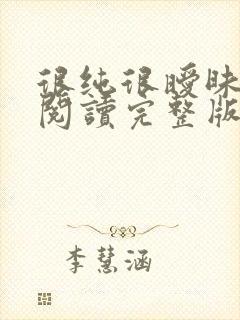 很純很曖昧
閱讀完整版
李慧涵